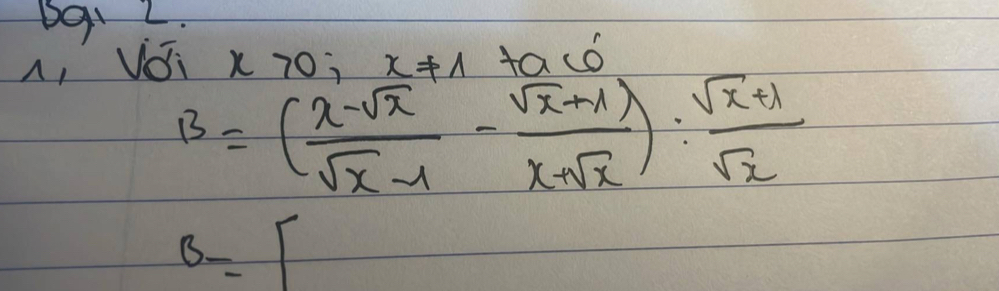 Bài 2.
1, Với x >0; x ≠ 1 ta có
B = ( (x - √x) / (√x - 1) - (√x + 1) / (x + √x) ) : (√x + 1) / √x
B = [